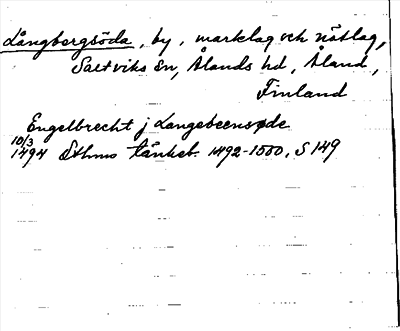 Långbergsöda, by, marklag och nätlag,
Saltviks sn, Ålands hd, Åland,
Finland
Engelbrecht j Langebeensøde
10/3
1494 Sthms tänkeb. 1492-1500, S 149